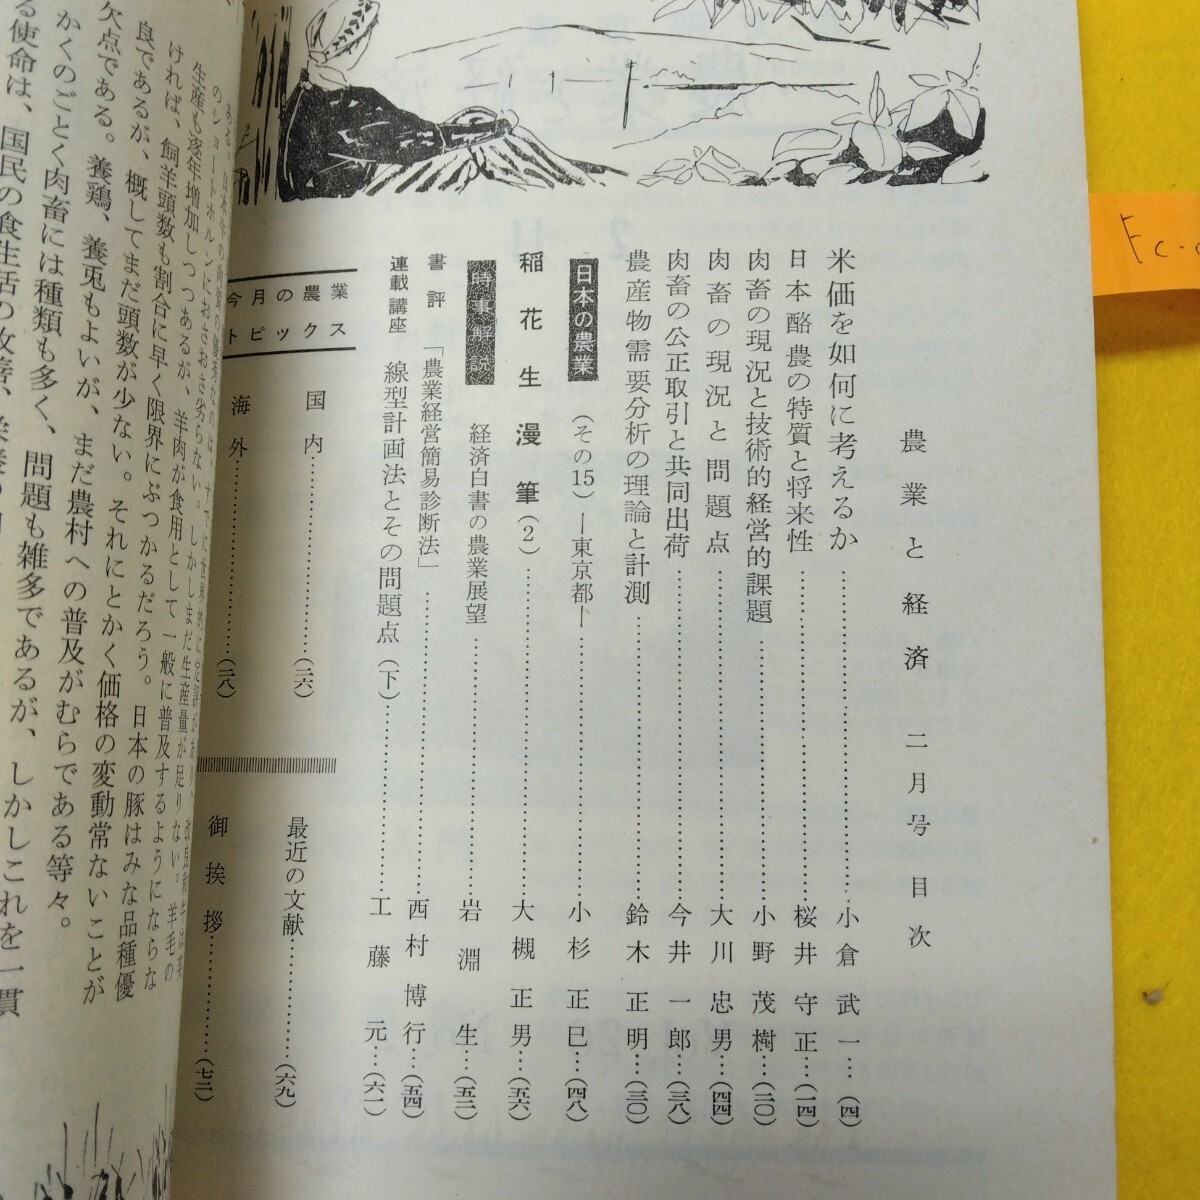 農業と経済 二月号目次
米価を如何に考えるか……小倉武一…(四)
日本酪農の特質と将来性……桜井守正…(一四)
肉畜の現況と技術的経営的課題……小野茂樹…(二〇)
肉畜の現況と問題点……大川忠男…(四四)
肉畜の公正取引と共同出荷……今井一郎…(三八)
農産物需要分析の理論と計測……鈴木正明…(三〇)
日本の農業 (その15)―東京都―……小杉正巳…(四八)
稲花生漫筆(2)……大槻正男…(五六)
時事解説 経済白書の農業展望……岩淵生…(五二)
書評 「農業経営簡易診断法」……西村博行…(五四)
連載講座 線型計画法とその問題点(下)……工藤元…(六一)
今月の農業
トピックス
国内……(二六)
海外……(二八)
最近の文献……(六九)
御挨拶……(七二)
のショートホルンにおさおさ劣らない。しかしまだ生産量が足りない。羊毛の
生産も逐年増加しつつあるが、羊肉が食用として一般に普及するようにならな
ければ、飼羊頭数も割合に早く限界にぶつかるだろう。日本の豚はみな品種優
良であるが、概してまだ頭数が少ない。それにとかく価格の変動常ないことが
欠点である。養鶏、養兎もよいが、まだ農村への普及がむらである等々。
かくのごとく肉畜には種類も多く、問題も雑多であるが、しかしこれを一貫
る使命は、国民の食生活の改善、
Fc-